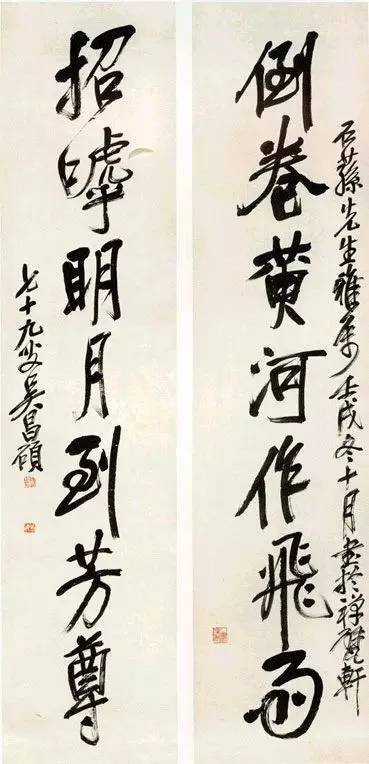 石蓀先生雅屬壬戌冬十月書於禪甓軒
倒卷黄河作飛雨
招嘑明月到芳尊
七十九叟吴昌碩